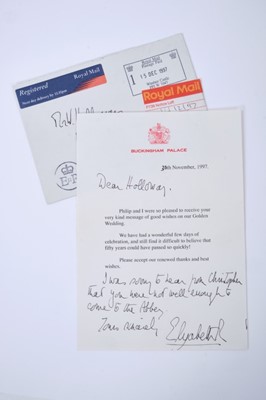 Registered
Royal Mail
Next day delivery by 12.00pm
1
15 DEC 1997
Royal Mail
BUCKINGHAM PALACE
28th November, 1997.
Dear Holloway.
Philip and I were so pleased to receive your
very kind message of good wishes on our Golden
Wedding.
We have had a wonderful few days of
celebration, and still find it difficult to believe that
fifty years could have passed so quickly!
Please accept our renewed thanks and best
wishes.
I was sorry to hear from Christopher
that you were not well enough to
come to the Abbey
Yours sincerely
Elizabeth R